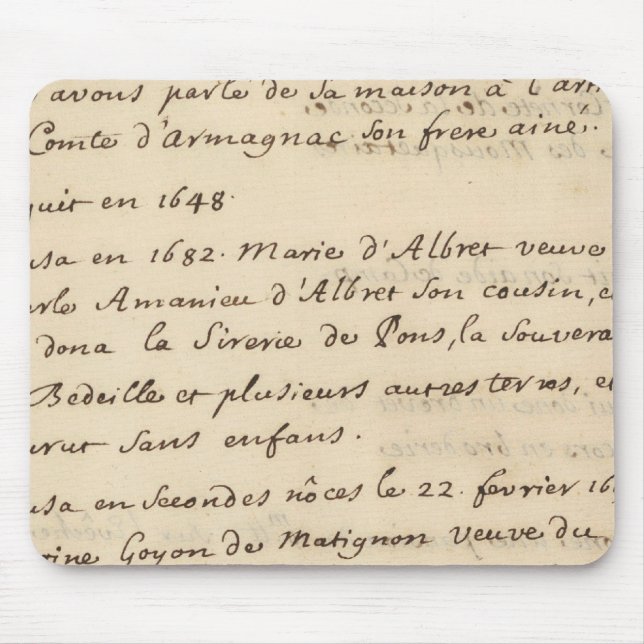 avous parlé de sa maison à l'arti
Comte d'Armagnac son frere ainé.
quit en 1648.
usa en 1682. Marie d'Albret veuve
arle Amanieu d'Albret son cousin, e
dona la Sirerie de Pons, la souvera
Bedeille et plusieurs autres terres, e
urut sans enfans.
usa en secondes nôces le 22. fevrier 16
rine Goyon de Matignon veuve du